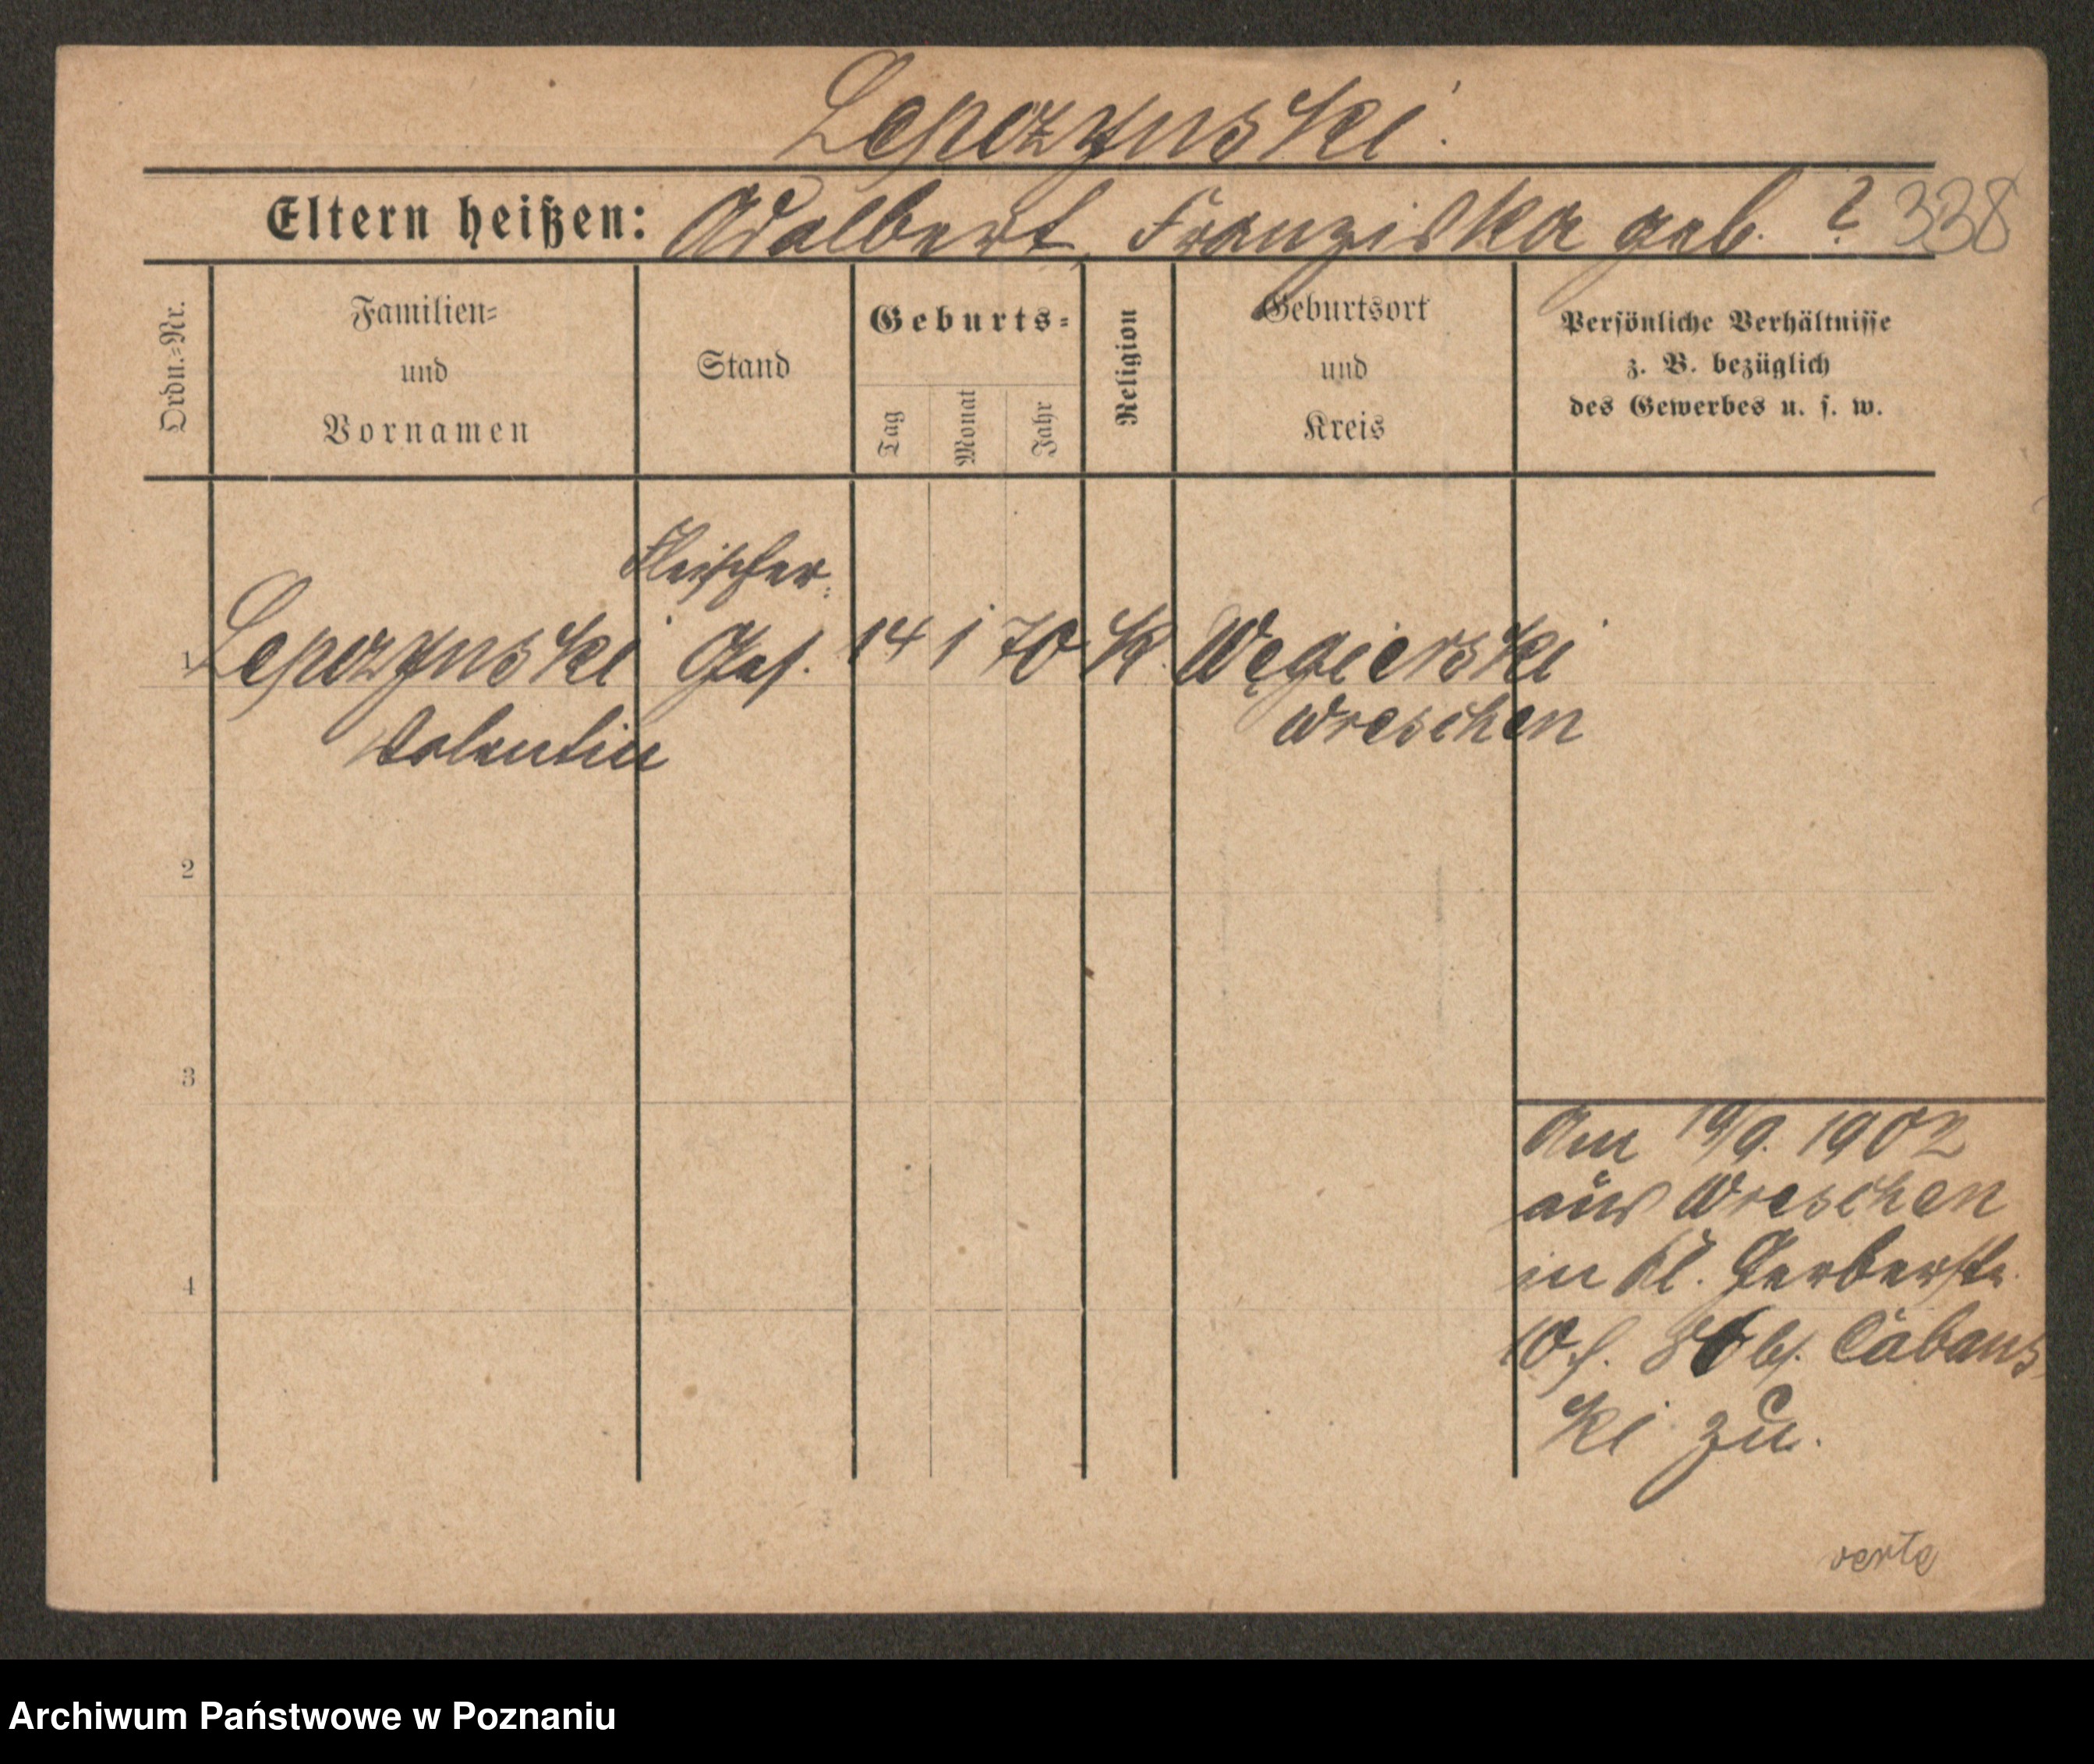 Lepczynski.
Eltern heißen: Adalbert, Franziska geb. ? 338
Ordn.=Nr.
Familien=
und
Vornamen
Stand
Geburts=
Tag
Monat
Jahr
Religion
Geburtsort
und
Kreis
Persönliche Verhältnisse
z. B. bezüglich
des Gewerbes u. s. w.
Fleischer=
1 Lepczynski Ges. 14 1 70 K. Węgierski
Wreschen
Valentin
2
3
4
Am 19/9. 1902
aus Wreschen
in Kl. Gerberstr.
10 f. bs. Cabans
ki zu.
verte
Archiwum Państwowe w Poznaniu